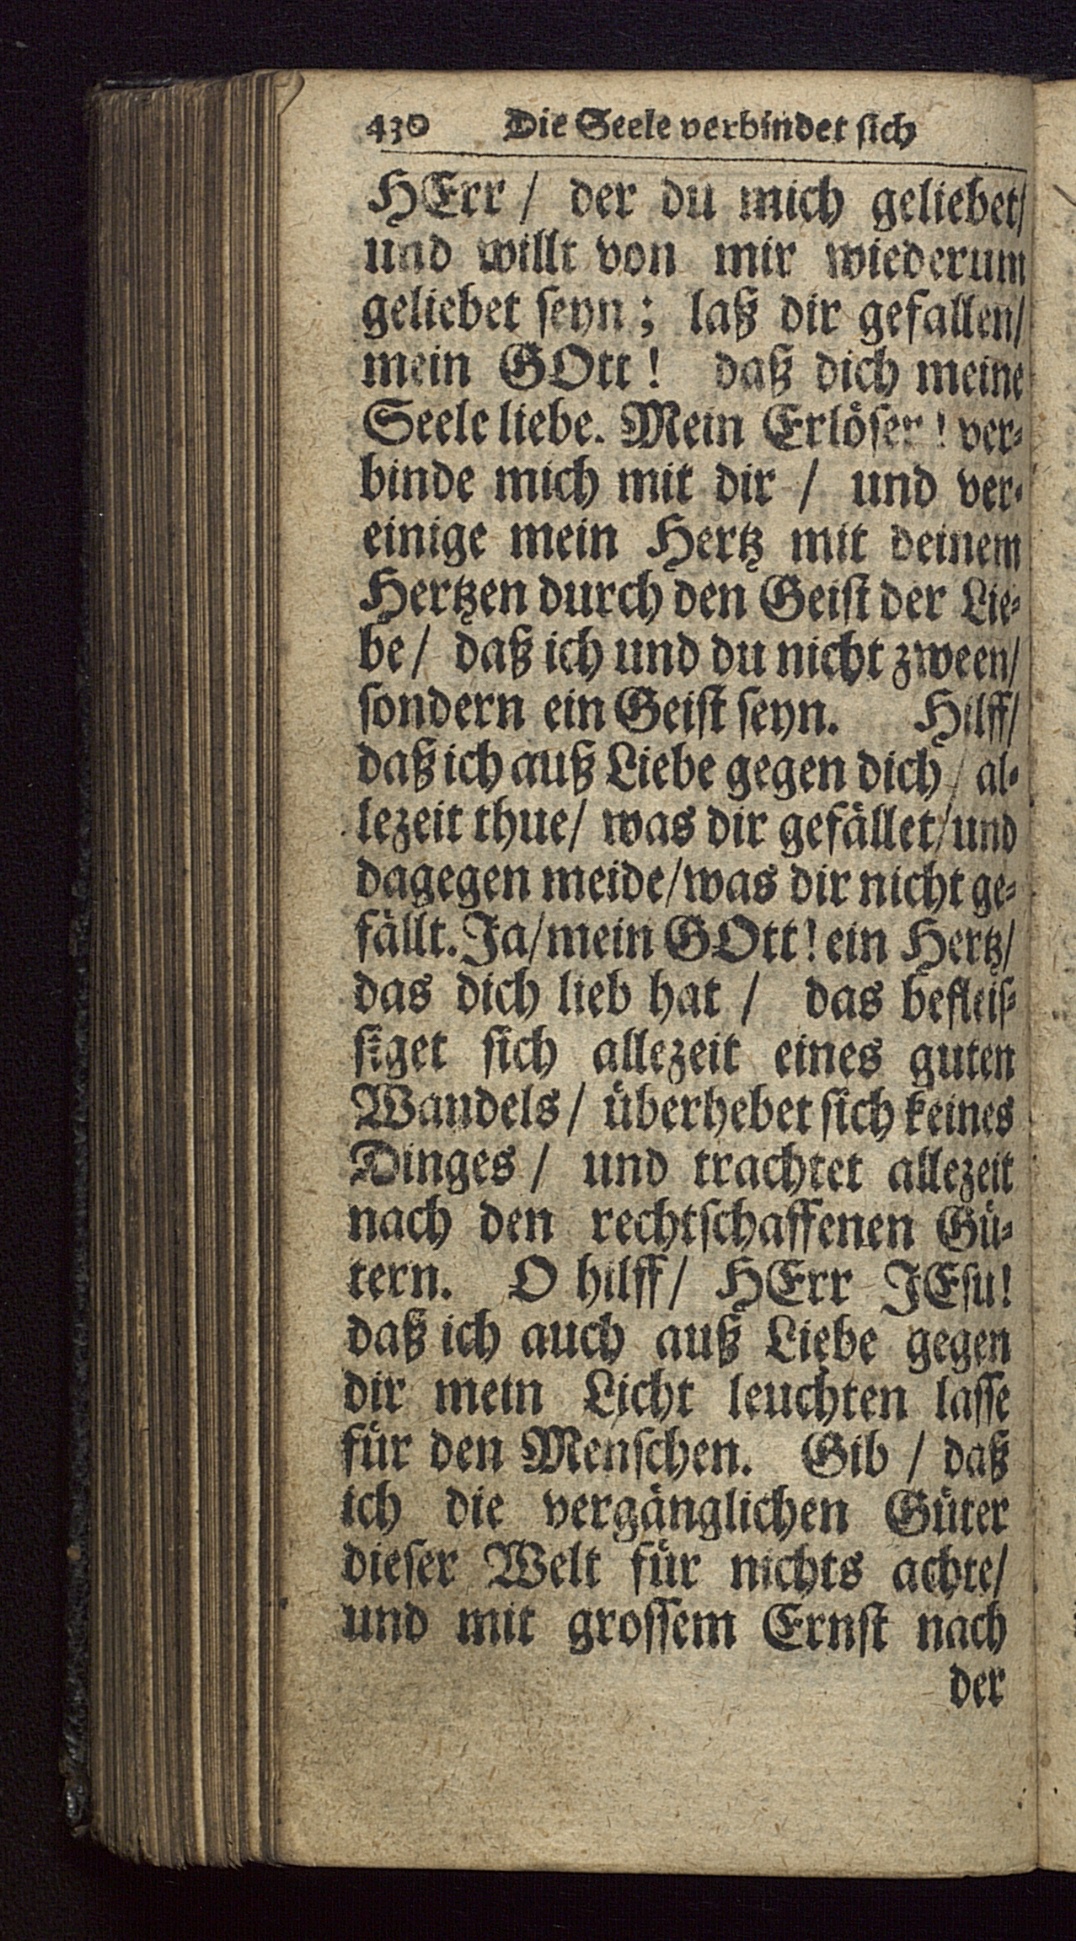 430 Die Seele verbindet sich
HErr / der du mich geliebet/
und willt von mir wiederum
geliebet seyn; laß dir gefallen/
mein GOtt! daß dich meine
Seele liebe. Mein Erlöser! ver-
binde mich mit dir / und ver-
einige mein Hertz mit deinem
Hertzen durch den Geist der Lie-
be/ daß ich und du nicht zween/
sondern ein Geist seyn. Hilff/
daß ich auß Liebe gegen dich / al-
lezeit thue/ was dir gefället/und
dagegen meide/was dir nicht ge-
fällt. Ja/mein GOtt! ein Hertz/
das dich lieb hat / das befleis-
siget sich allezeit eines guten
Wandels / überhebet sich keines
Dinges / und trachtet allezeit
nach den rechtschaffenen Gü-
tern. O hilff/ HErr JEsu!
daß ich auch auß Liebe gegen
dir mein Licht leuchten lasse
für den Menschen. Gib / daß
ich die vergänglichen Güter
dieser Welt für nichts achte/
und mit grossem Ernst nach
der